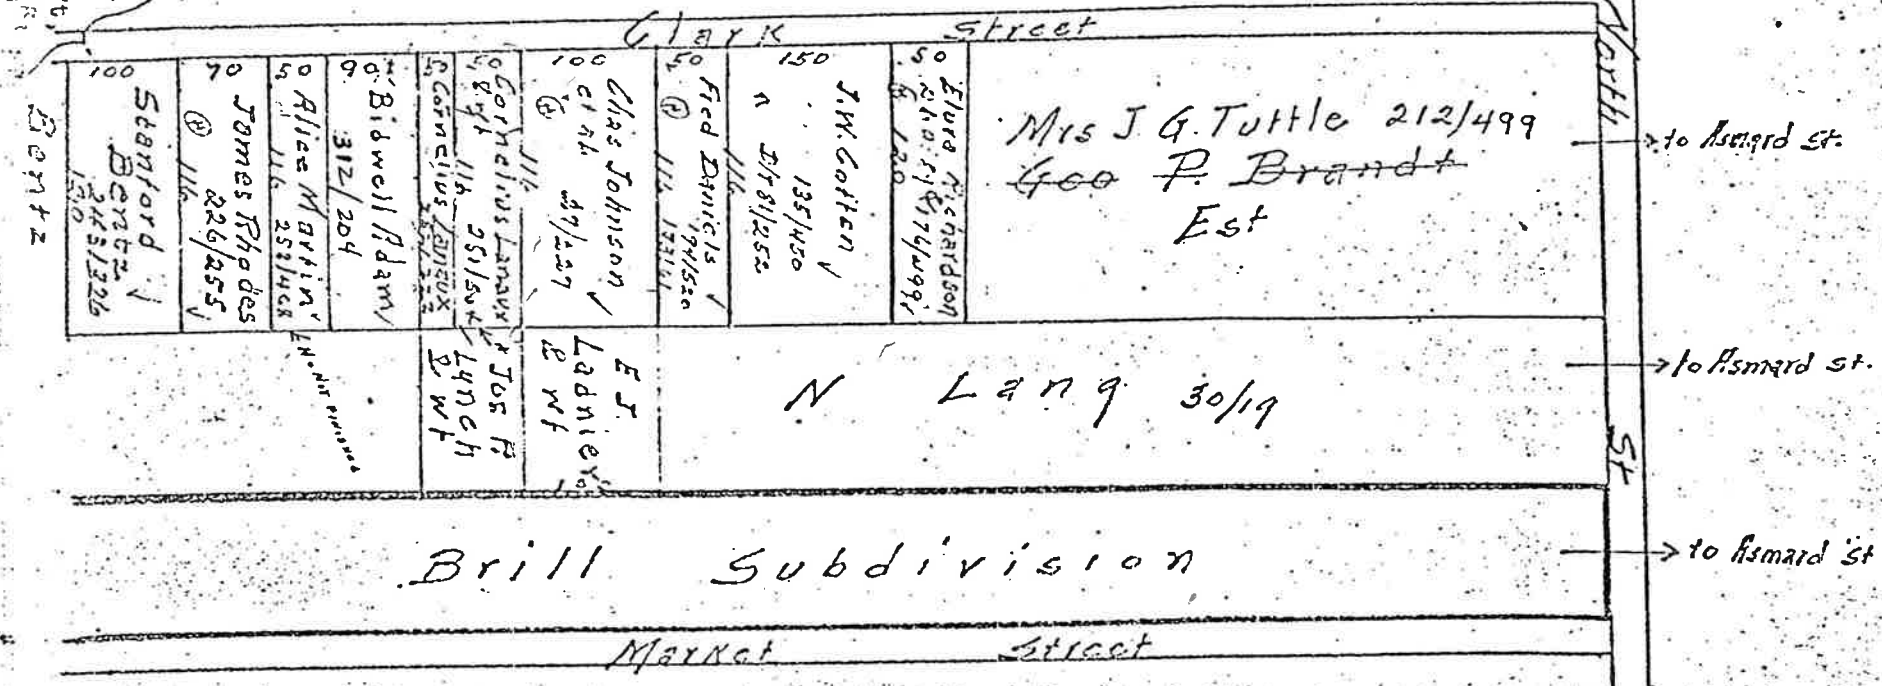 Clark Street
North St
100
Stanford
Bentz
243/326
Bentz
70
James Rhodes
226/255
H 116
50
Alice Martin
116 252/468
90
Bidwell Adam
312/204
Cornelius Lanaux
50
Cornelius Lanaux
116
100
Chas Johnson
et al 47/227
H 116
50
Fred Daniels
194/520
H 116
150
J.W. Cotten
135/450
116
50
Elura Richardson
120
Mrs J. G. Tuttle 212/499
Geo P. Brandt
Est
to Asmard St.
Jos A
Lynch
D wf
E J
Ladnier
& wf
N Lang 30/19
to Asmard St.
Brill Subdivision
to Asmard St
Market Street